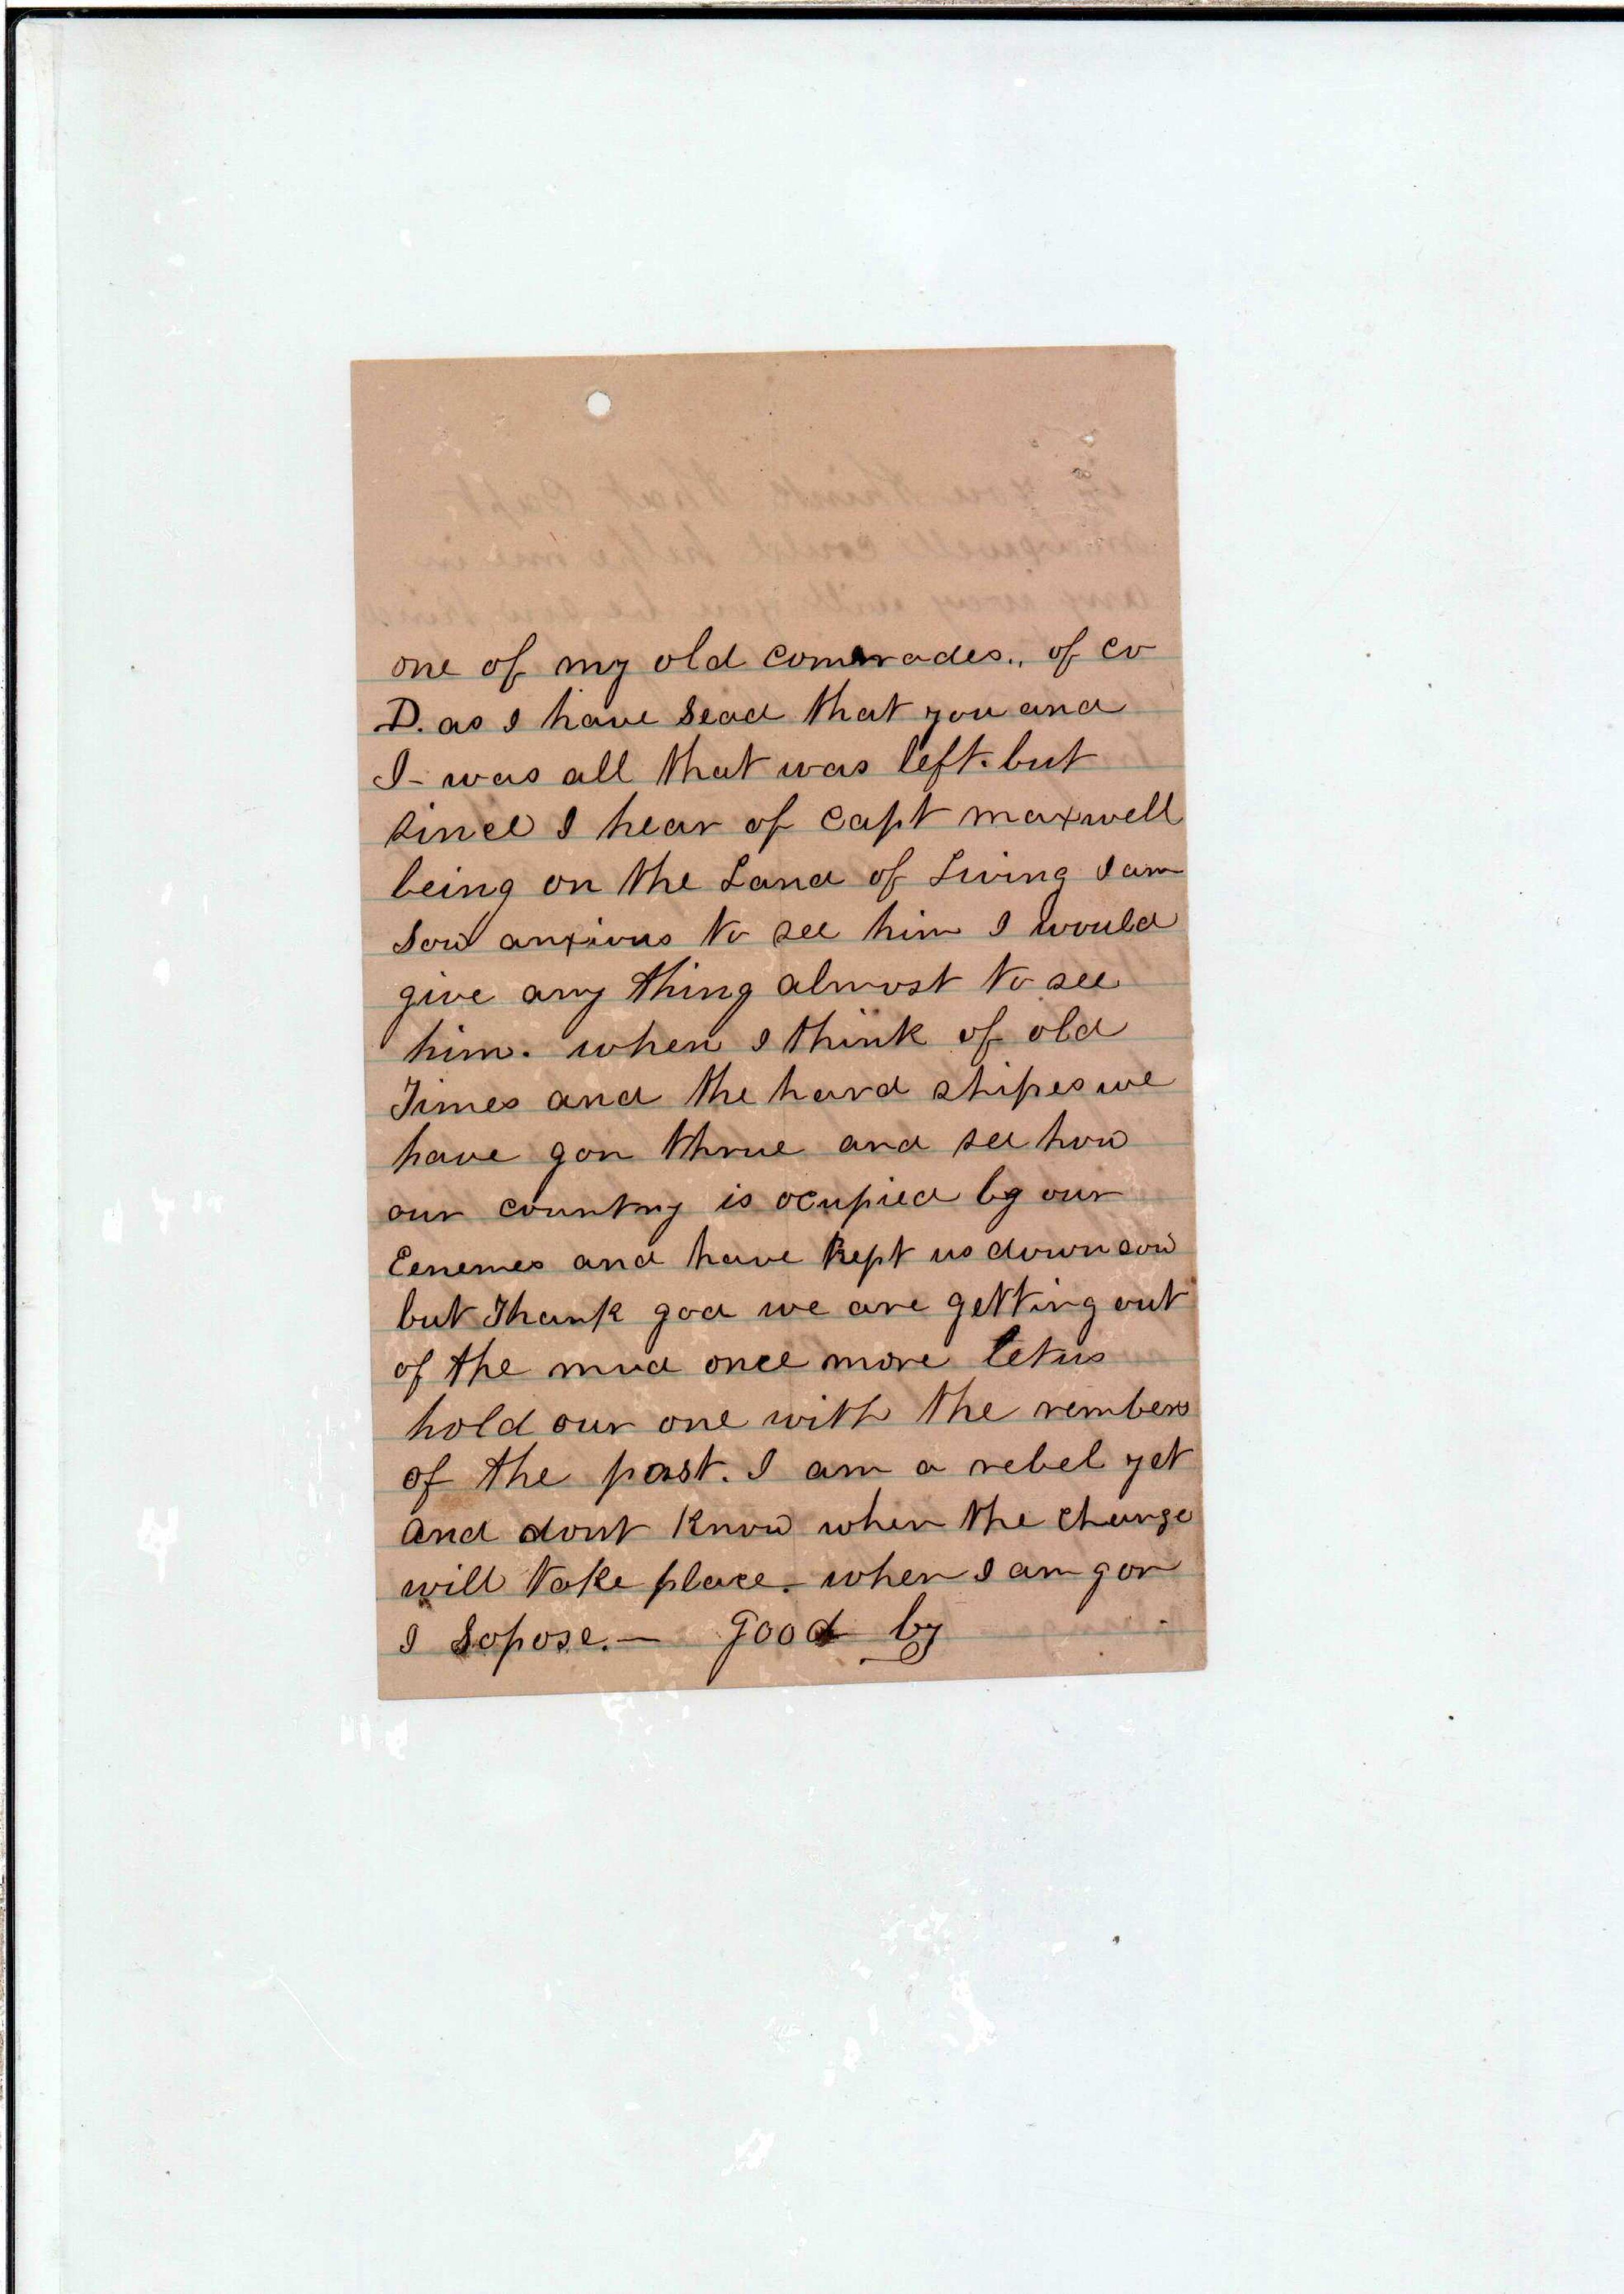 one of my old comerades., of co
D. as I have sead that you and
I- was all that was left. but
since I hear of capt maxwell
being on the Land of Living I am
sow anxious to see him I would
give any thing almost to see
him. when I think of old
Times and the hard shipes we
have gon thrue and see how
our country is ocupied by our
Eenemes and have kept us down sow
but Thank god we are getting out
of the mud once more let us
hold our one with the rembers
of the past. I am a rebel yet
and dont know when the change
will take place. when I am gon
I sopose. — good by